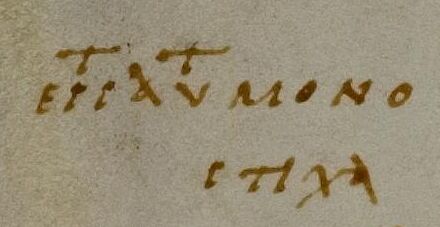 ΕΙϹ Τ ΑΥΤ ΜΟΝΟ
ϹΤΙΧΑ